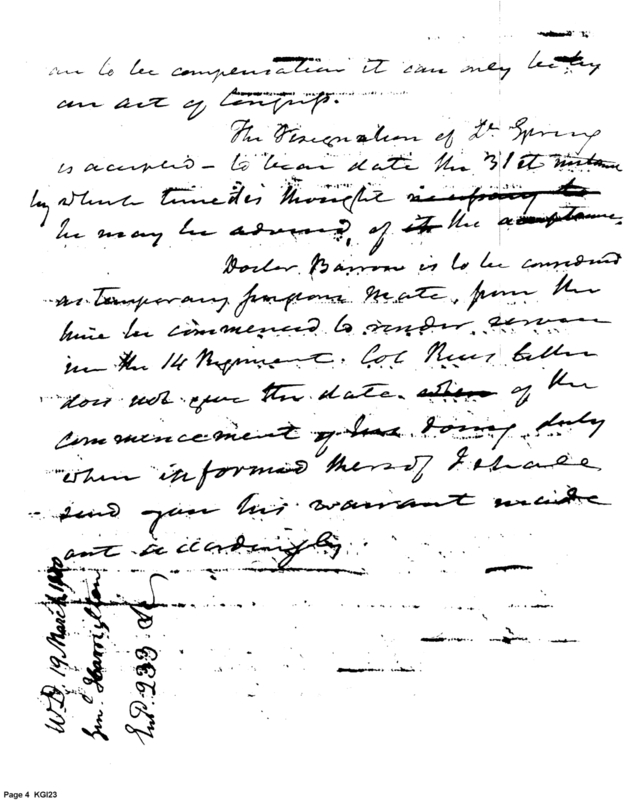 are to be compensation it can only be by
an act of Congress.
The Resignation of Dr. Spring
is accepted – to bear date the 31st instant
by which time it is thought necessary to
he may be advised, of it the acceptance.
Doctor Barrow is to be considered
as temporary surgeons Mate, from the
time he commenced to render service
in the 14 Regiment. Col Rices letter
does not give the date when of the
commencement of his doing duty
when informed thereof I shall
send you his warrant made
out accordingly.
W.D. 19 March 1800
Genl. Hamilton
Ent. 233
Page 4 KGI23